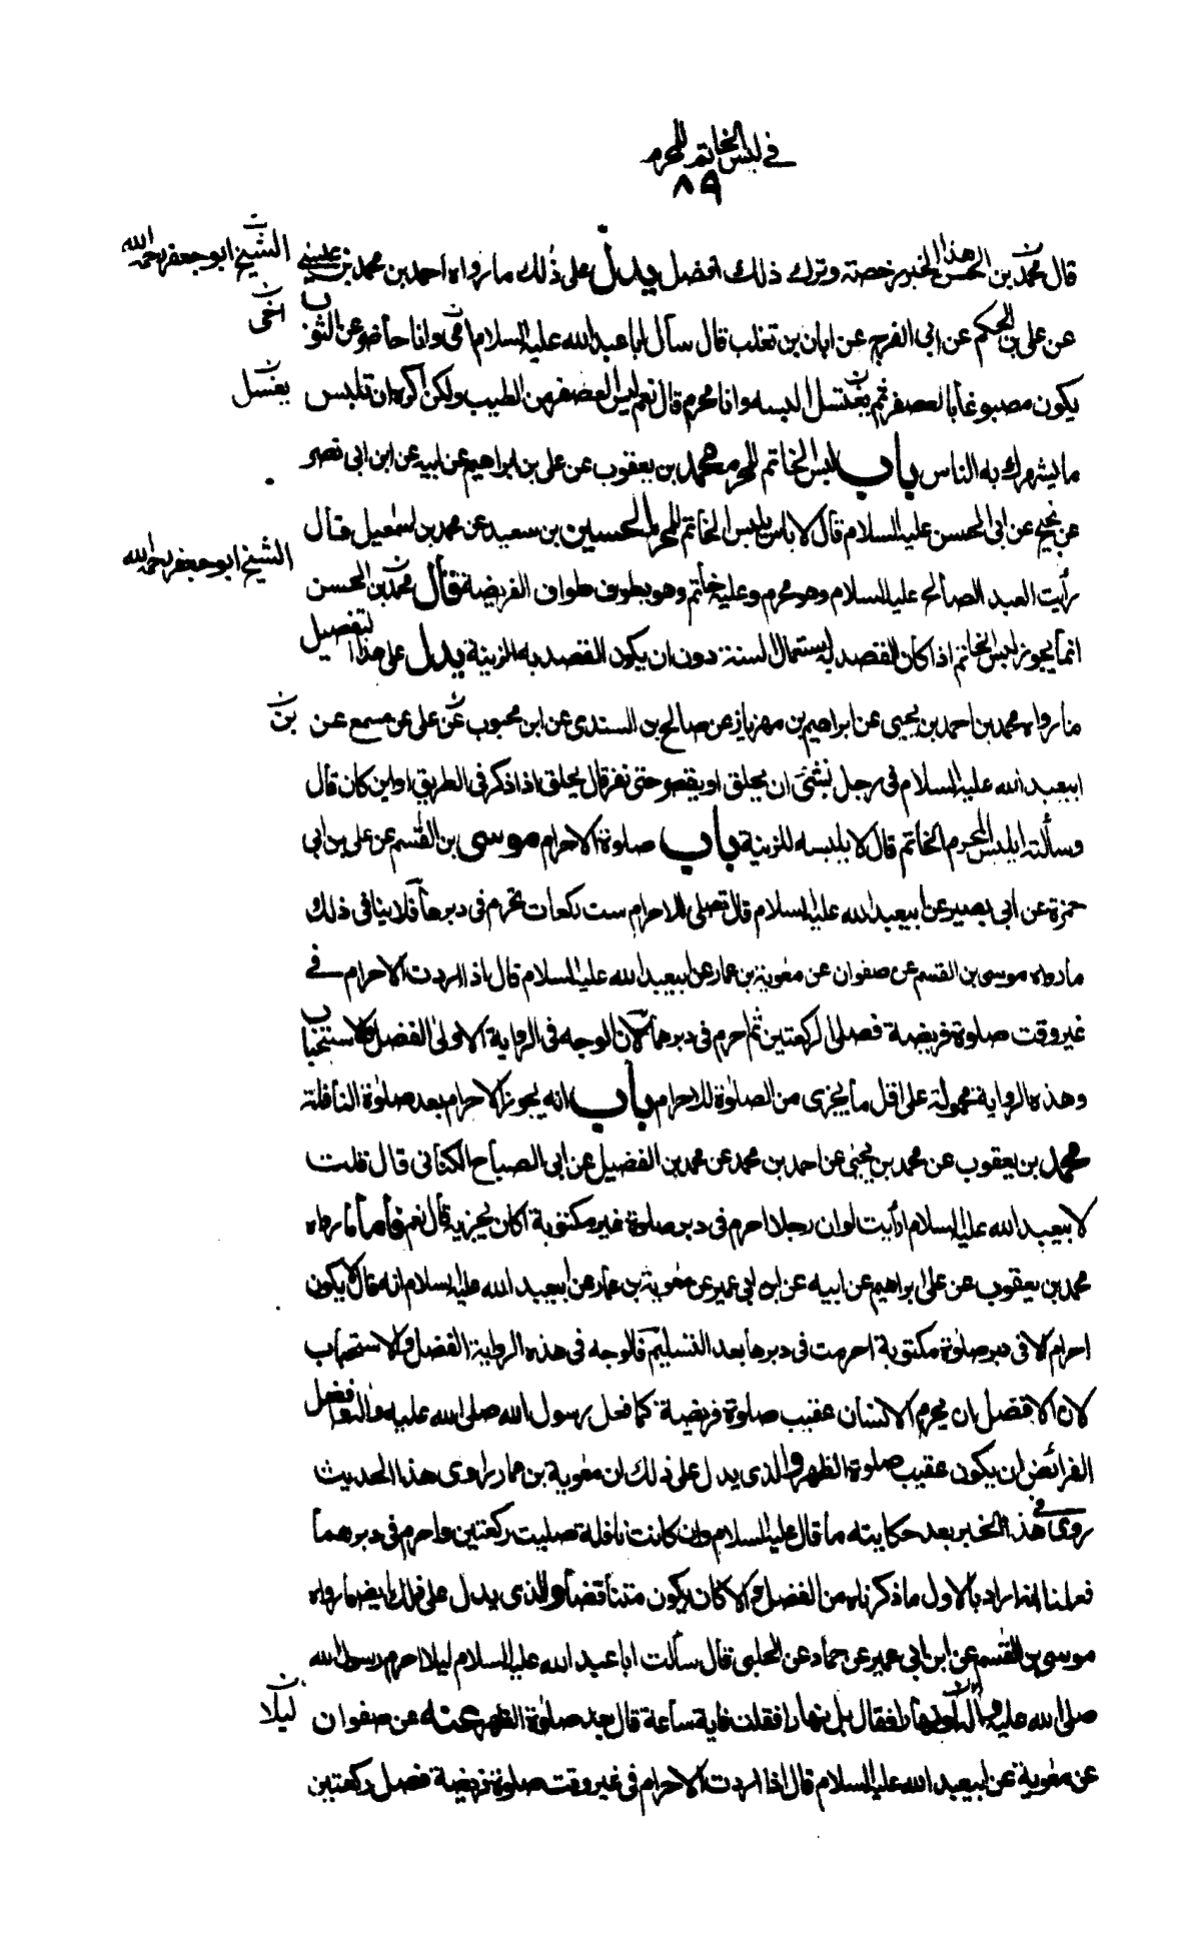 في لبس الخاتم للمحرم
٨٩
قال محمد بن الحسن هذا الخبر رخصة وترك ذلك افضل يدل على ذلك ما رواه احمد بن محمد بن عيسى
الشيخ ابو جعفر رحمه الله
عن علي بن الحكم عن ابي الفرج عن ابان بن تغلب قال سأل ابا عبد الله عليه السلام اخي وانا حاضر عن الثوب
اخي
يكون مصبوغا بالعصفر ثم يغتسل البسه وانا محرم قال نعم ليس العصفر من الطيب ولكن اكره ان تلبس
يغسل
ما يشهرك به الناس باب لبس الخاتم للمحرم محمد بن يعقوب عن علي بن ابراهيم عن ابيه عن ابن ابى نصر
عن نجيح عن ابى الحسن عليه السلام قال لا باس بلبس الخاتم للمحرم الحسين بن سعيد عن محمد بن اسمعيل قال
رأيت العبد الصالح عليه السلام وهو محرم وعليه خاتم وهو يطوف طواف الفريضة فقال محمد بن الحسن
الشيخ ابو جعفر رحمه الله
انما يجوز لبس الخاتم اذا كان القصد به استعمال السنة دون ان يكون القصد به الزينة يدل على هذا التفصيل
ما رواه محمد بن احمد بن يحيى عن ابراهيم بن مهزيار عن صالح بن السندى عن ابن محبوب عن على عن مسمع عن
بن
ابيعبد الله عليه السلام في رجل نسى ان يحلق او يقصر حتى نفر قال يحلق اذا ذكر فى الطريق او اين كان قال
وسألته ايلبس المحرم الخاتم قال لا يلبسه للزينة باب صلوة الاحرام موسى بن القسم عن على بن ابى
حمزة عن ابى بصير عن ابيعبد الله عليه السلام قال تصلى للاحرام ست ركعات تحرم فى دبرها فلا ينافى ذلك
ما رواه موسى بن القسم عن صفوان عن معوية بن عمار عن ابيعبد الله عليه السلام قال اذا اردت الاحرام في
غير وقت صلوة فريضة فصل ركعتين ثم احرم فى دبرها لان الوجه فى الرواية الاولى الفضل والاستحباب
وهذه الرواية محمولة على اقل ما يجزى من الصلوة للاحرام باب انه يجوز الاحرام بعد صلوة النافلة
محمد بن يعقوب عن محمد بن يحيى عن احمد بن محمد عن محمد بن الفضيل عن ابى الصباح الكنانى قال قلت
لابيعبد الله عليه السلام ارأيت لو ان رجلا احرم فى دبر صلوة غير مكتوبة اكان يجزيه قال نعم فأما ما رواه
محمد بن يعقوب عن على ابراهيم عن ابيه عن ابن ابى عمير عن معوية بن عمار عن ابيعبد الله عليه السلام انه قال لا يكون
احرام الا فى دبر صلوة مكتوبة احرمت فى دبرها بعد التسليم فالوجه فى هذه الرواية الفضل والاستحباب
لان الافضل ان يحرم الانسان عقيب صلوة فريضة كما فعل رسول الله صلى الله عليه واله وافضل
الفرائض ان يكون عقيب صلوة الظهر والذى يدل على ذلك ان معوية بن عمار راوى هذا الحديث
روى فى هذا الخبر بعد حكايته ما قال عليه السلام وان كانت نافلة صليت ركعتين واحرم فى دبرهما
فعلمنا انه اراد بالاول ما ذكرناه من الفضل والا كان يكون متناقضا والذى يدل على ذلك ايضا ما رواه
موسى بن القسم عن ابن ابى عمير عن حماد عن الحلبى قال سألت ابا عبد الله عليه السلام ليلا احرم رسول الله
صلى الله عليه واله او نهارا فقال بل نهارا فقلت فاية ساعة قال عند صلوة الظهر عنه عن صفوان
ليلا
عن معوية عن ابيعبد الله عليه السلام قال اذا اردت الاحرام فى غير وقت صلوة فريضة فصل ركعتين